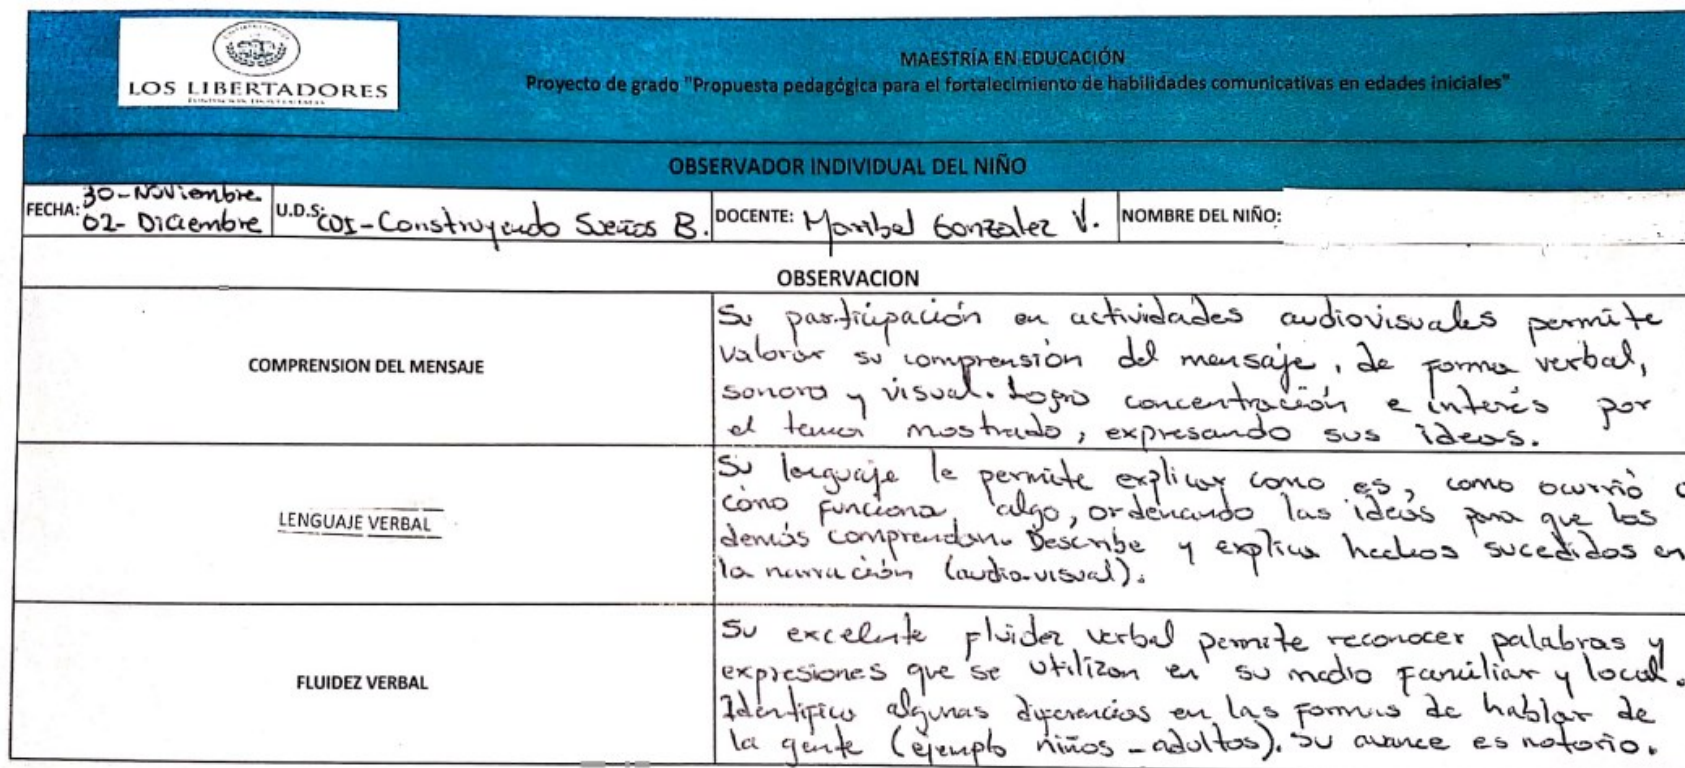 LOS LIBERTADORES
FUNDACIÓN UNIVERSITARIA
MAESTRÍA EN EDUCACIÓN
Proyecto de grado "Propuesta pedagógica para el fortalecimiento de habilidades comunicativas en edades iniciales"
OBSERVADOR INDIVIDUAL DEL NIÑO
FECHA: 30-Noviembre
02- Diciembre
U.D.S: CDI-Construyendo Sueños B.
DOCENTE: Maribel Gonzalez V.
NOMBRE DEL NIÑO:
OBSERVACION
COMPRENSION DEL MENSAJE
Su participación en actividades audiovisuales permite
valorar su comprensión del mensaje, de forma verbal,
sonora y visual. Logro concentración e interés por
el tema mostrado, expresando sus ideas.
LENGUAJE VERBAL
Su lenguaje le permite explicar como es, como ocurrió o
cómo funciona algo, ordenando las ideas para que los
demás comprendan. Describe y explica hechos sucedidos en
la narración (audio-visual).
FLUIDEZ VERBAL
Su excelente fluidez verbal permite reconocer palabras y
expresiones que se utilizan en su medio familiar y local.
Identifica algunas diferencias en las formas de hablar de
la gente (ejemplo niños - adultos). Su avance es notorio.